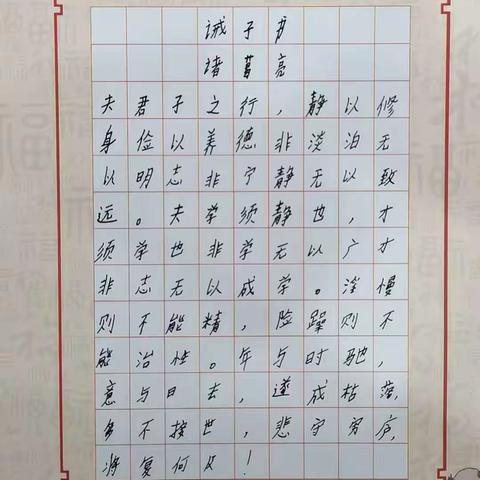 诫子书
诸葛亮
夫君子之行，静以修
身俭以养德非淡泊无
以明志非宁静无以致
远。夫学须静也，才
须学也非学无以广才
非志无以成学。淫慢
则不能精，险躁则不
能治性。年与时驰，
意与日去，遂成枯落，
多不接世，悲守穷庐，
将复何及！